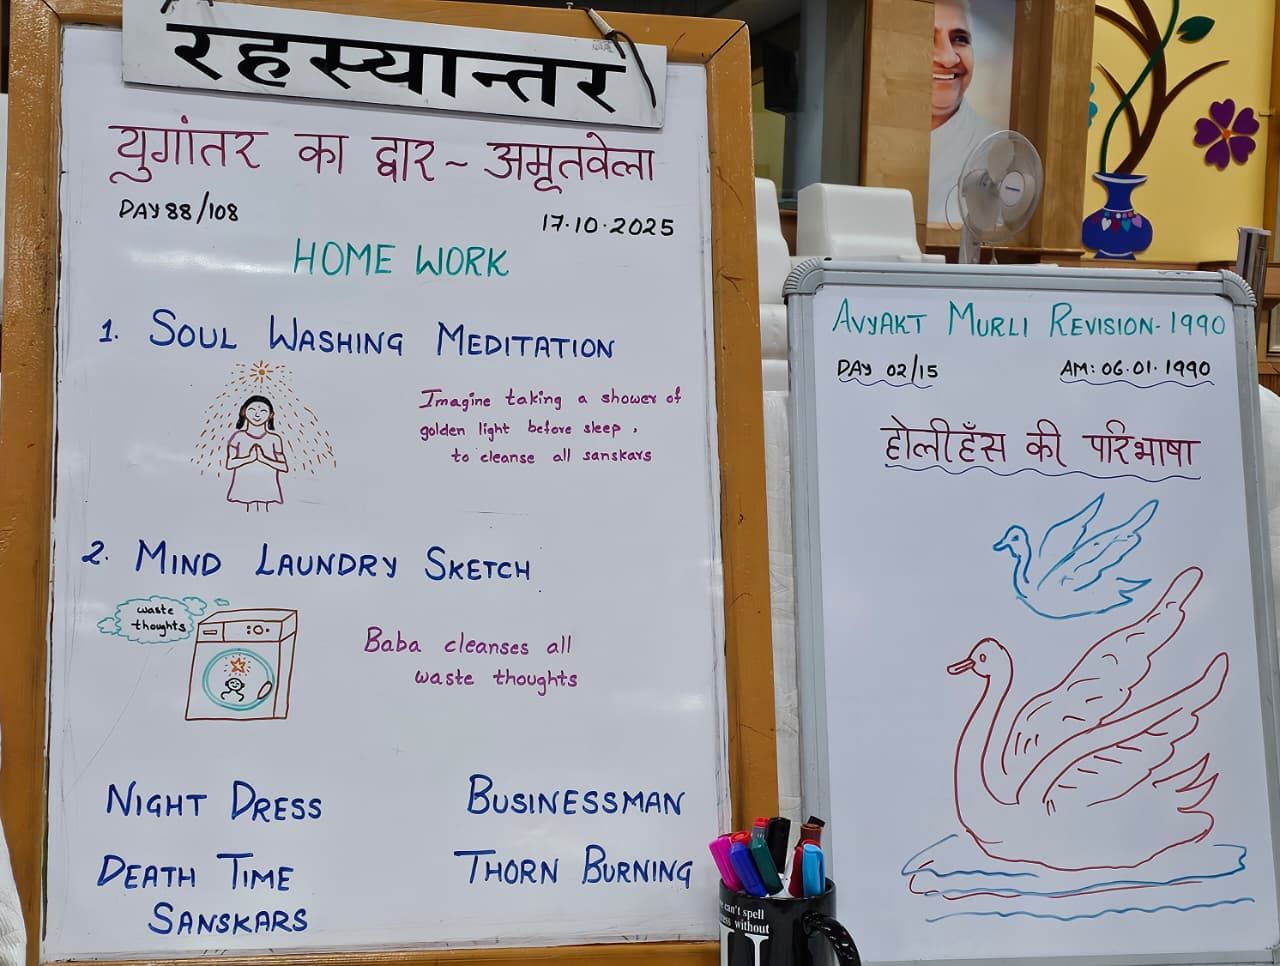 रहस्यान्तर
युगांतर का द्वार ~ अमृतवेला
DAY 88/108
17.10.2025
HOME WORK
1. SOUL WASHING MEDITATION
Imagine taking a shower of
golden light before sleep,
to cleanse all sanskars
2. MIND LAUNDRY SKETCH
waste
thoughts
Baba cleanses all
waste thoughts
NIGHT DRESS
BUSINESSMAN
DEATH TIME
SANSKARS
THORN BURNING
AVYAKT MURLI REVISION-1990
DAY 02/15
AM: 06.01.1990
होलीहँस की परिभाषा
can't spell
without